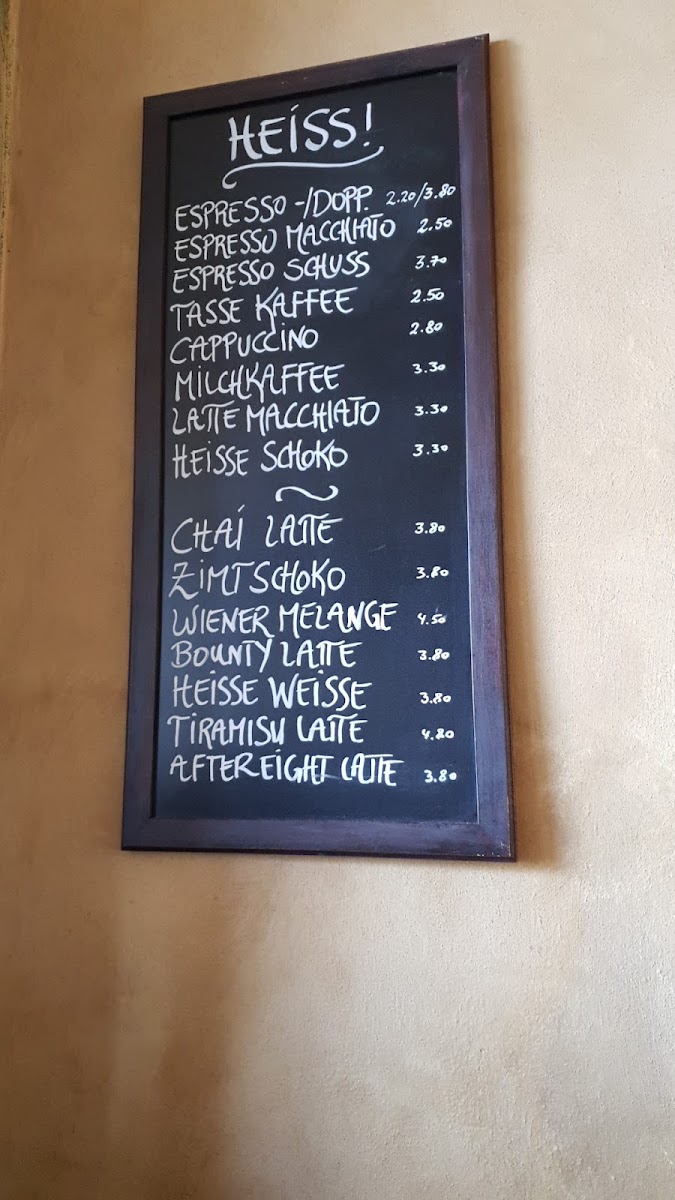 HEISS!
ESPRESSO -/DOPP. 2.20/3.80
ESPRESSO MACCHIATO 2.50
ESPRESSO SCHUSS 3.70
TASSE KAFFEE 2.50
CAPPUCCINO 2.80
MILCHKAFFEE 3.30
LATTE MACCHIATO 3.30
HEISSE SCHOKO 3.30
CHAI LATTE 3.80
ZIMTSCHOKO 3.80
WIENER MELANGE 4.50
BOUNTY LATTE 3.80
HEISSE WEISSE 3.80
TIRAMISU LATTE 4.80
AFTER EIGHT LATTE 3.80